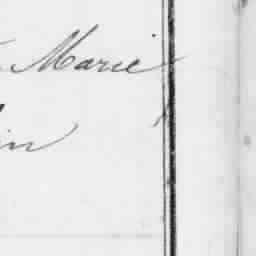 Marie
in